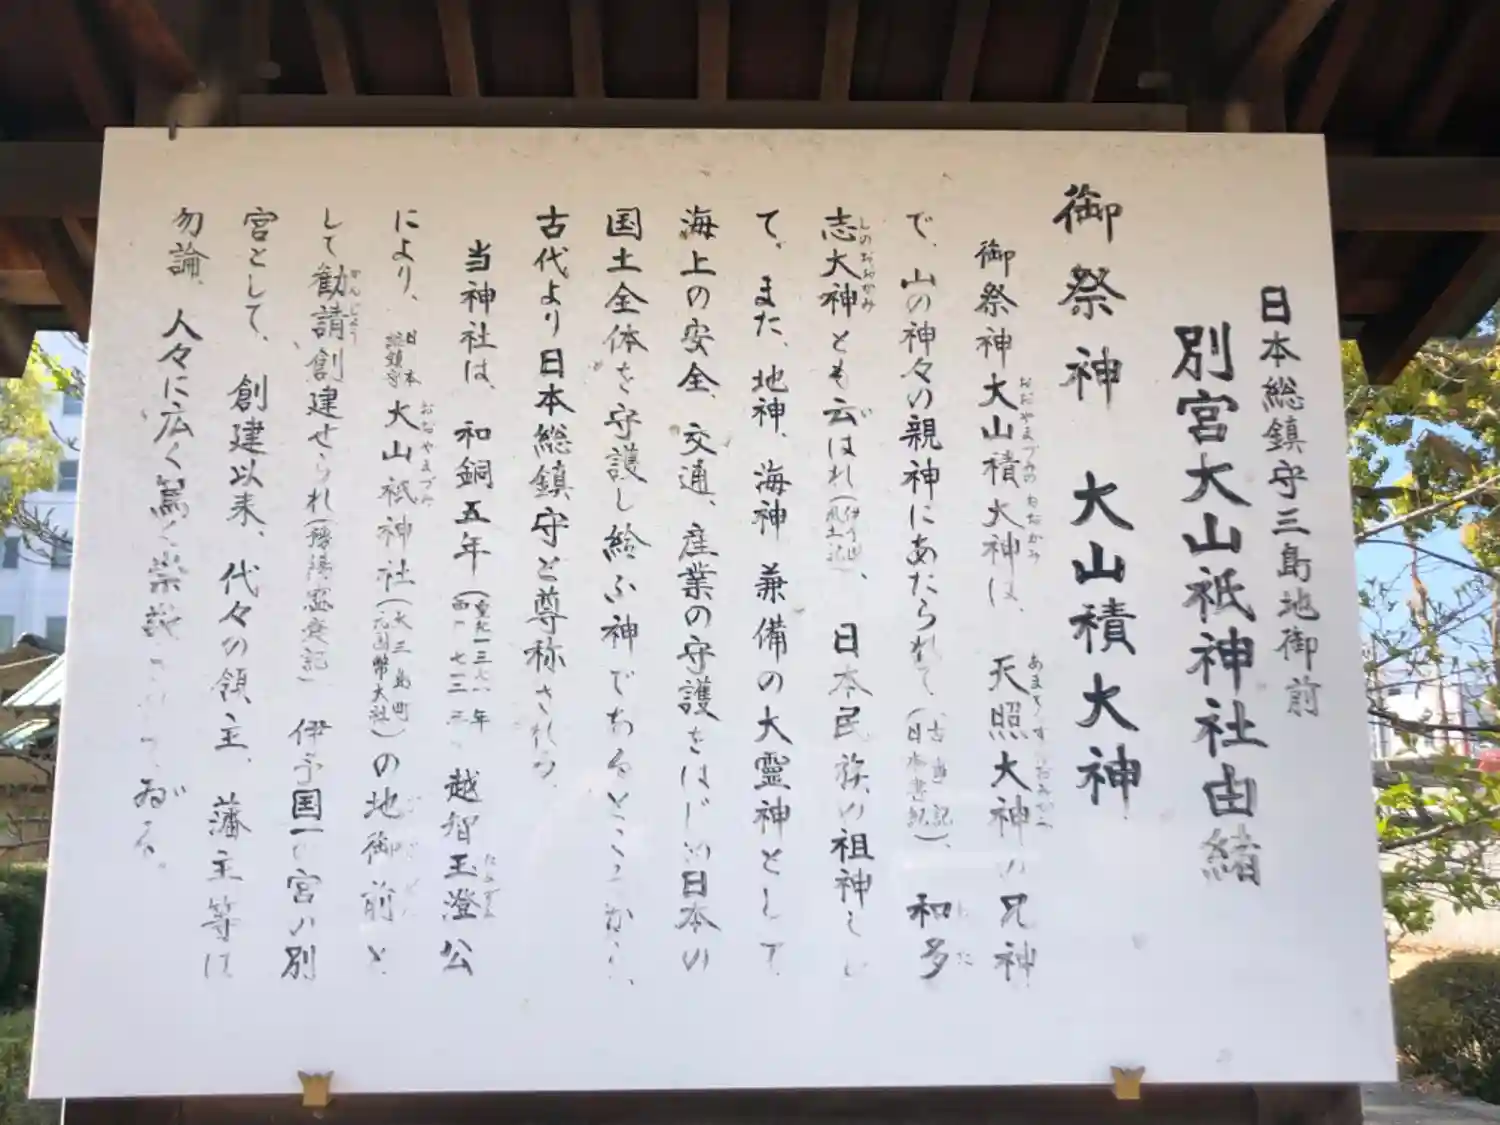 日本総鎮守三島地御前
別宮大山祇神社由緒
御祭神 大山積大神
御祭神大山積大神は、天照大神の兄神
で、山の神々の親神にあたられて(古事記日本書紀)、和多
志大神とも云はれ(伊予国風土記)、日本民族の祖神とし
て、また、地神、海神兼備の大霊神として
海上の安全、交通、産業の守護をはじめ日本の
国土全体を守護し給ふ神であるところから、
古代より日本総鎮守と尊称される。
当神社は、和銅五年(皇紀一三七二年西暦七一二年)越智玉澄公
により、日本総鎮守大山祇神社(大三島町元国幣大社)の地御前と
して勧請創建せられ 伊予国一の宮の別
宮として、創建以来、代々の領主、藩主等は
勿論、人々に広く篤く崇敬されてゐる。